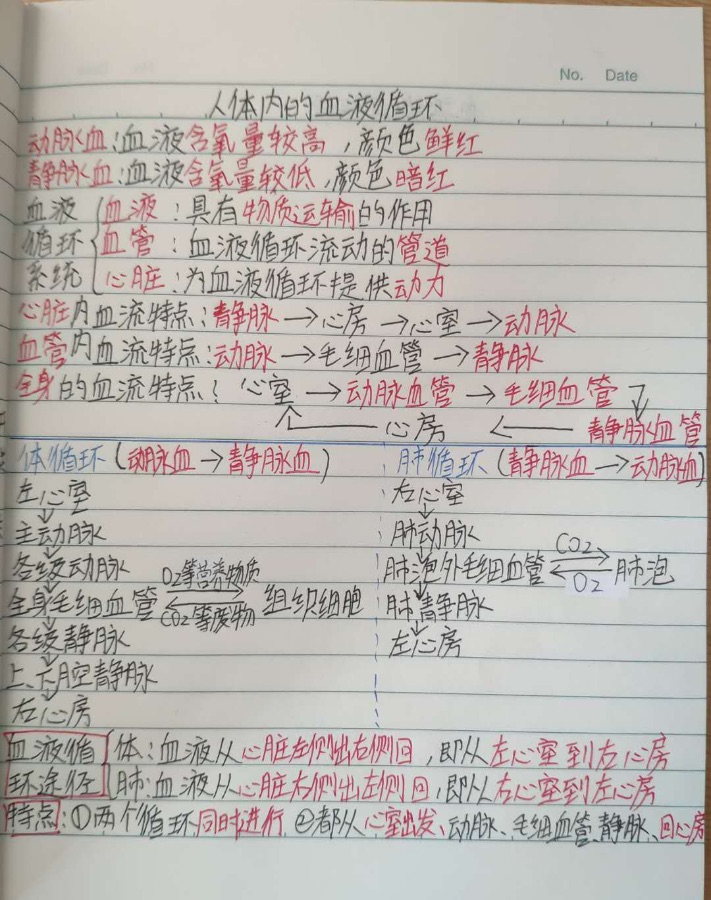 No. Date
人体内的血液循环
动脉血:血液含氧量较高,颜色鲜红
静脉血:血液含氧量较低,颜色暗红
血液循环系统 { 血液:具有物质运输的作用
血管:血液循环流动的管道
心脏:为血液循环提供动力
心脏内血流特点:静脉→心房→心室→动脉
血管内血流特点:动脉→毛细血管→静脉
全身的血流特点:心室→动脉血管→毛细血管
↖心房←静脉血管
体循环(动脉血→静脉血)
左心室
↓
主动脉
↓
各级动脉
↓
全身毛细血管 O2等营养物质→ ←CO2等废物 组织细胞
↓
各级静脉
↓
上、下腔静脉
↓
右心房
肺循环(静脉血→动脉血)
右心室
↓
肺动脉
↓
肺泡外毛细血管 CO2→ ←O2 肺泡
↓
肺静脉
↓
左心房
血液循环途径 { 体:血液从心脏左侧出右侧回,即从左心室到右心房
肺:血液从心脏右侧出左侧回,即从右心室到左心房
特点:①两个循环同时进行 ②都从心室出发、动脉、毛细血管、静脉、回心房